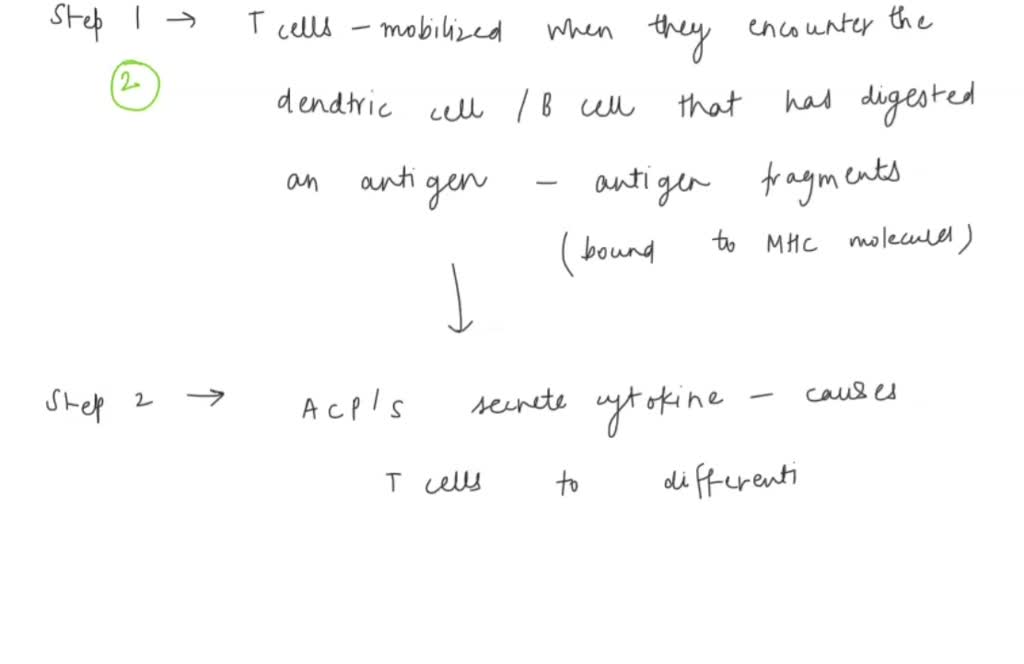 Step 1 → T cells – mobilized when they encounter the
2
dendtric cell / B cell that has digested
an antigen – antigen fragments
(bound to MHC molecules)
↓
Step 2 → ACP's secrete cytokine – causes
T cells to differenti